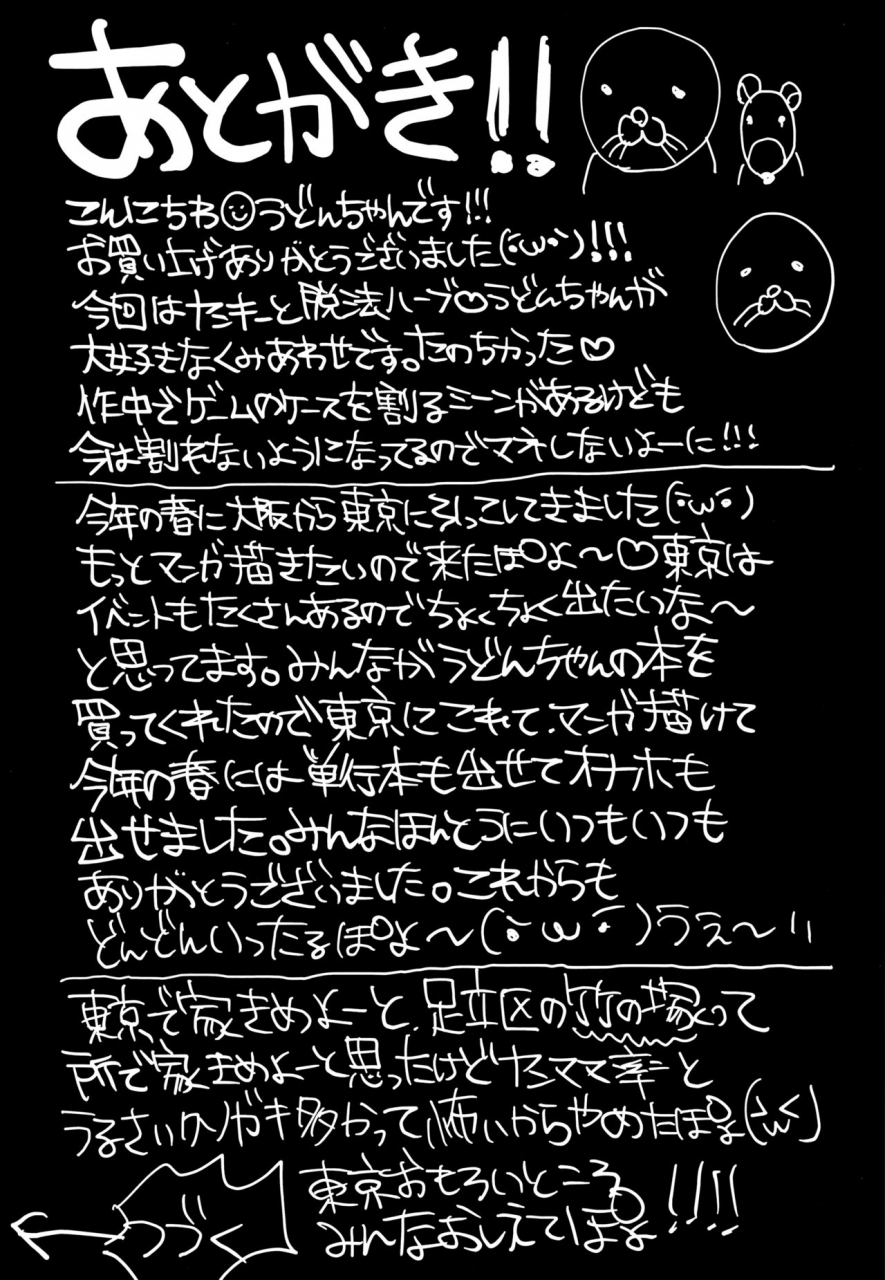 あとがき!!
こんにちわ☺うどんちゃんです!!!
お買い上げありがとうございました(・ω・)!!!
今回はヤンキーと脱法ハーブ♡うどんちゃんが
大好きなくみあわせです。たのちかった♡
作中でゲームのケースを割るシーンがあるけども
今は割れないようになってるのでマネしないよーに!!!
今年の春に大阪から東京にひっこしてきました(・ω・)
もっとマンガ描きたいので来たぽよ〜♡東京は
イベントもたくさんあるのでちょくちょく出たいな〜
と思ってます。みんながうどんちゃんの本を
買ってくれたので東京にこれて、マンガ描けて
今年の春には単行本も出せてオナホも
出せました。みんなほんとうにいつもいつも
ありがとうございました。これからも
どんどんいったるぽよ〜(・ω・)うぇ〜い
東京で家きめよーと、足立区の竹の塚って
所で家きめよーと思ったけどヤンママ率と
うるさいクソガキ多かって怖いからやめたぽよ
東京おもろいところ
みんなおしえてぽよ!!!!
つづく